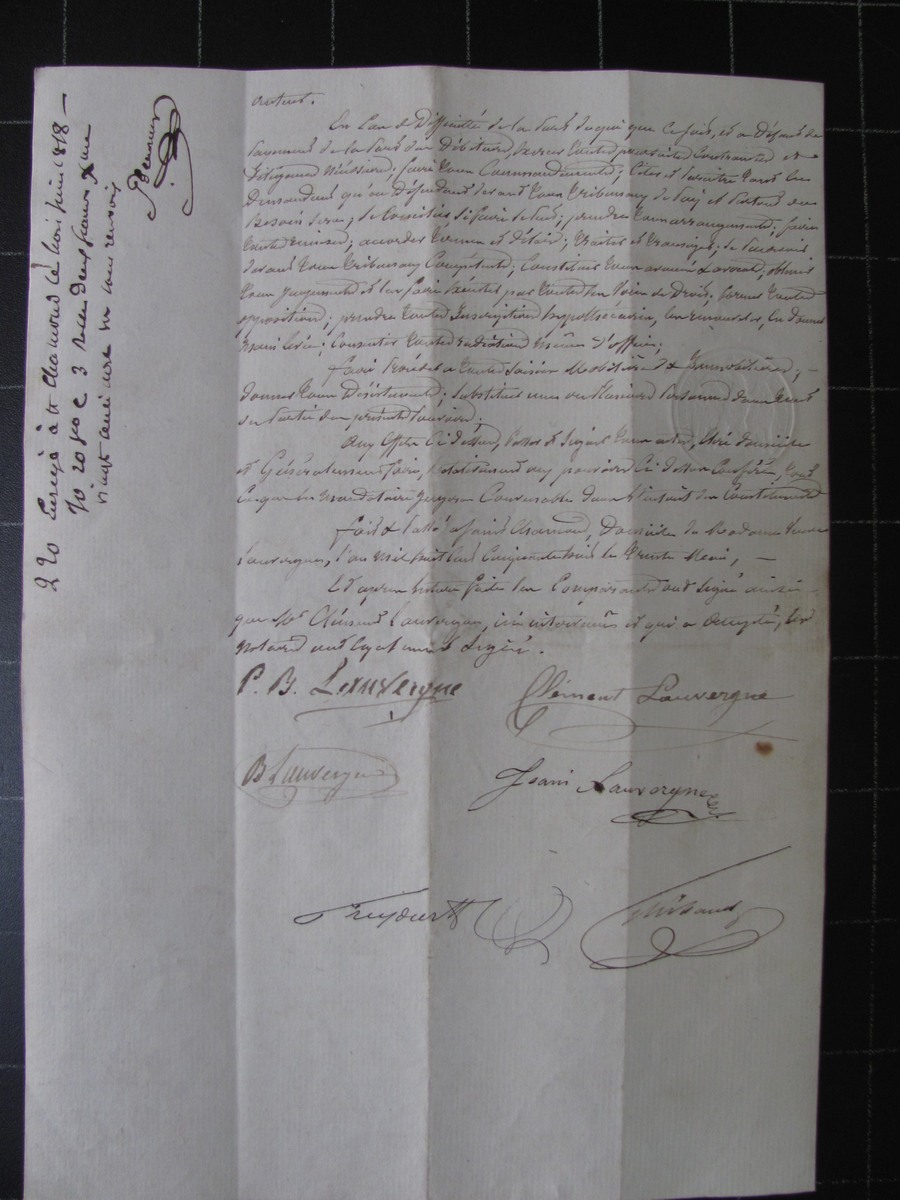 autant.
En Cas de Difficultés de la part de qui que ce soit, et à Défaut de
payement de la part des Débiteurs, exercer toutes poursuites contraintes et
Diligences Nécessaires, faire tous Commandements; Citer et paraître tant en
Demandant qu'en Défendant devant tous Tribunaux de Paix et partout ou
Besoin sera; se Concilier si faire se peut; prendre tous arrangements; faire
toutes remises, accorder termes et délais; traiter et transiger; se pourvoir
devant tous Tribunaux Compétents; Constituer tous avoués & avocats, obtenir
tous jugements et les faire Exécuter par toutes les Voies de Droit; former toutes
oppositions; prendre toutes Inscriptions hypothécaires, les renouveler, En donner
main levée; Consentir toutes radiations même d'office;
faire procéder à toutes saisies Mobilières & Immobilières; —
donner tous Désistements; substituer une ou plusieurs Personnes dans tout
ou partie des présents pouvoirs;
Aux Effets Ci dessus, passer et signer tous actes, élire domicile
et Généralement faire, relativement aux pouvoirs Ci dessus Conférés, tout
ce que les mandataires jugeront Convenable dans l'intérêt des Constituants
fait & passé à Saint Chamond, Domicile de Madame Veuve
Lauvergne, l'an mil huit cent Cinquante huit le trente Mai, —
Et après lecture faite les Comparants ont signé ainsi
que Mr Clément Lauvergne, ici intervenu et qui a accepté, les
Notaires ont également signé.
P. B. Lauvergne
Clément Lauvergne
B Lauvergne
Jeani Lauvergne
Thibaud
220 Enregé à St Chamond le trois juin 1858 —
fo 20 Ro C 3 reçu deux francs &
vingt centimes sans renvoi